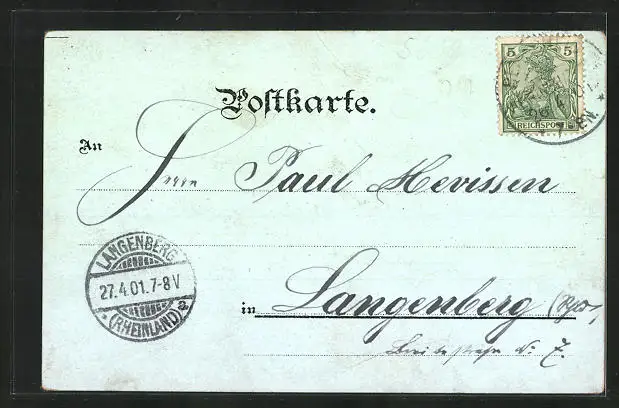 5 5
REICHSPOST
Postkarte.
An
Herrn Paul Hevissen
LANGENBERG
27.4.01.7-8V
* (RHEINLAND) a
in Langenberg
N. 7.